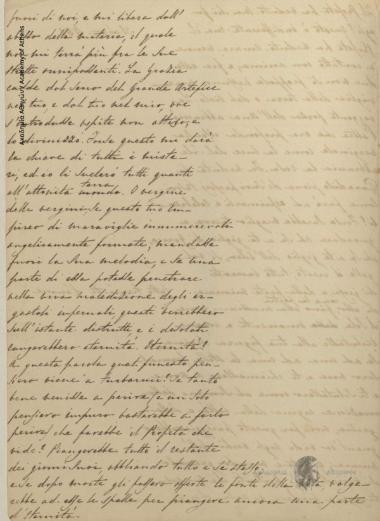 fuori di noi, e mi libera dall'
della materia, il quale
non mi terrà più fra le sue
strette onnipossenti. La Grazia
cadde dal seno del Grande Artefice
nel tuo e dal tuo nel mio, ove
s'introdusse ospite non attesa, e
lo divinizzò. Forse questo mi darà
la chiave di tutti i miste-
ri, ed io li svelerò tutti quanti
terra
all'attonito mondo. O vergine
delle vergini, se questo tuo Em-
pireo di maraviglie innumerevoli
angelicamente formate, mandasse
fuori la sua melodia, e se una
parte di essa potesse penetrare
nella viva maledizione degli er-
gastoli infernali questi verrebbero
sull'istante distrutti, e i desolati
cangerebbero eternità. Eternità!
A questa parola qual funesto pen-
siero viene a turbarmi! Se tanto
bene venisse a perire, se un solo
pensiero impuro bastasse a farlo
perire, che farebbe il Profeta che
vide? Piangerebbe tutto il restante
dei giorni suoi obbliando tutto e sé stesso;
e se dopo morte gli fossero offerte le fonti della vita volge
rebbe ad esse le spalle per piangere ancora una parte
d'Eternità.
Ακαδημία Αθηνών / Academy of Athens